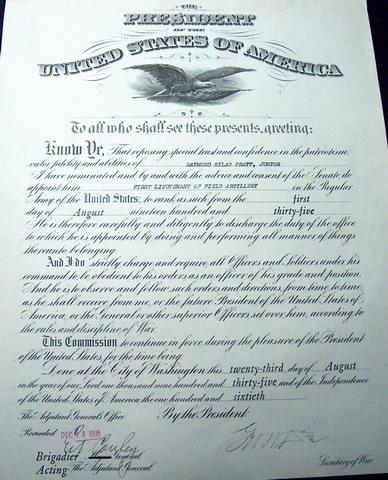 THE
PRESIDENT
OF THE
UNITED STATES OF AMERICA
To all who shall see these presents, greeting:
Know Ye, That reposing special trust and confidence in the patriotism,
valor, fidelity and abilities of RAYMOND SILAS PRATT, JUNIOR
I have nominated and by and with the advice and consent of the Senate, do
appoint him FIRST LIEUTENANT OF FIELD ARTILLERY in the Regular
Army of the United States: to rank as such from the first
day of August nineteen hundred and thirty-five
He is therefore carefully and diligently to discharge the duty of the office
to which he is appointed by doing and performing all manner of things
thereunto belonging.
And I do strictly charge and require all Officers and Soldiers under his
command to be obedient to his orders as an officer of his grade and position.
And he is to observe and follow such orders and directions, from time to time,
as he shall receive from me, or the future President of the United States of
America, or the General or other superior Officers set over him, according to
the rules and discipline of War.
This Commission to continue in force during the pleasure of the President
of the United States, for the time being.
Done at the City of Washington this twenty-third day of August
in the year of our Lord one thousand nine hundred and thirty-five and of the Independence
of the United States of America the one hundred and sixtieth
The Adjutant General's Office By the President:
Recorded DEC 1935
Brigadier General
Acting The Adjutant General Secretary of War